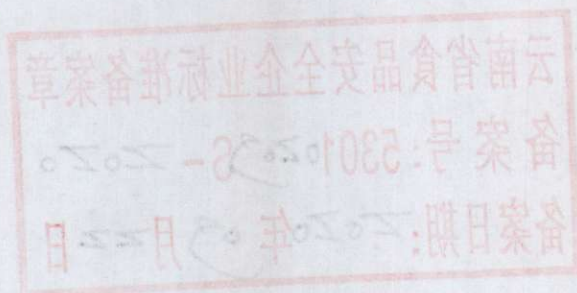 云南省食品安全企业标准备案章
备案号:53010203S-2020
备案日期:2020年03月22日